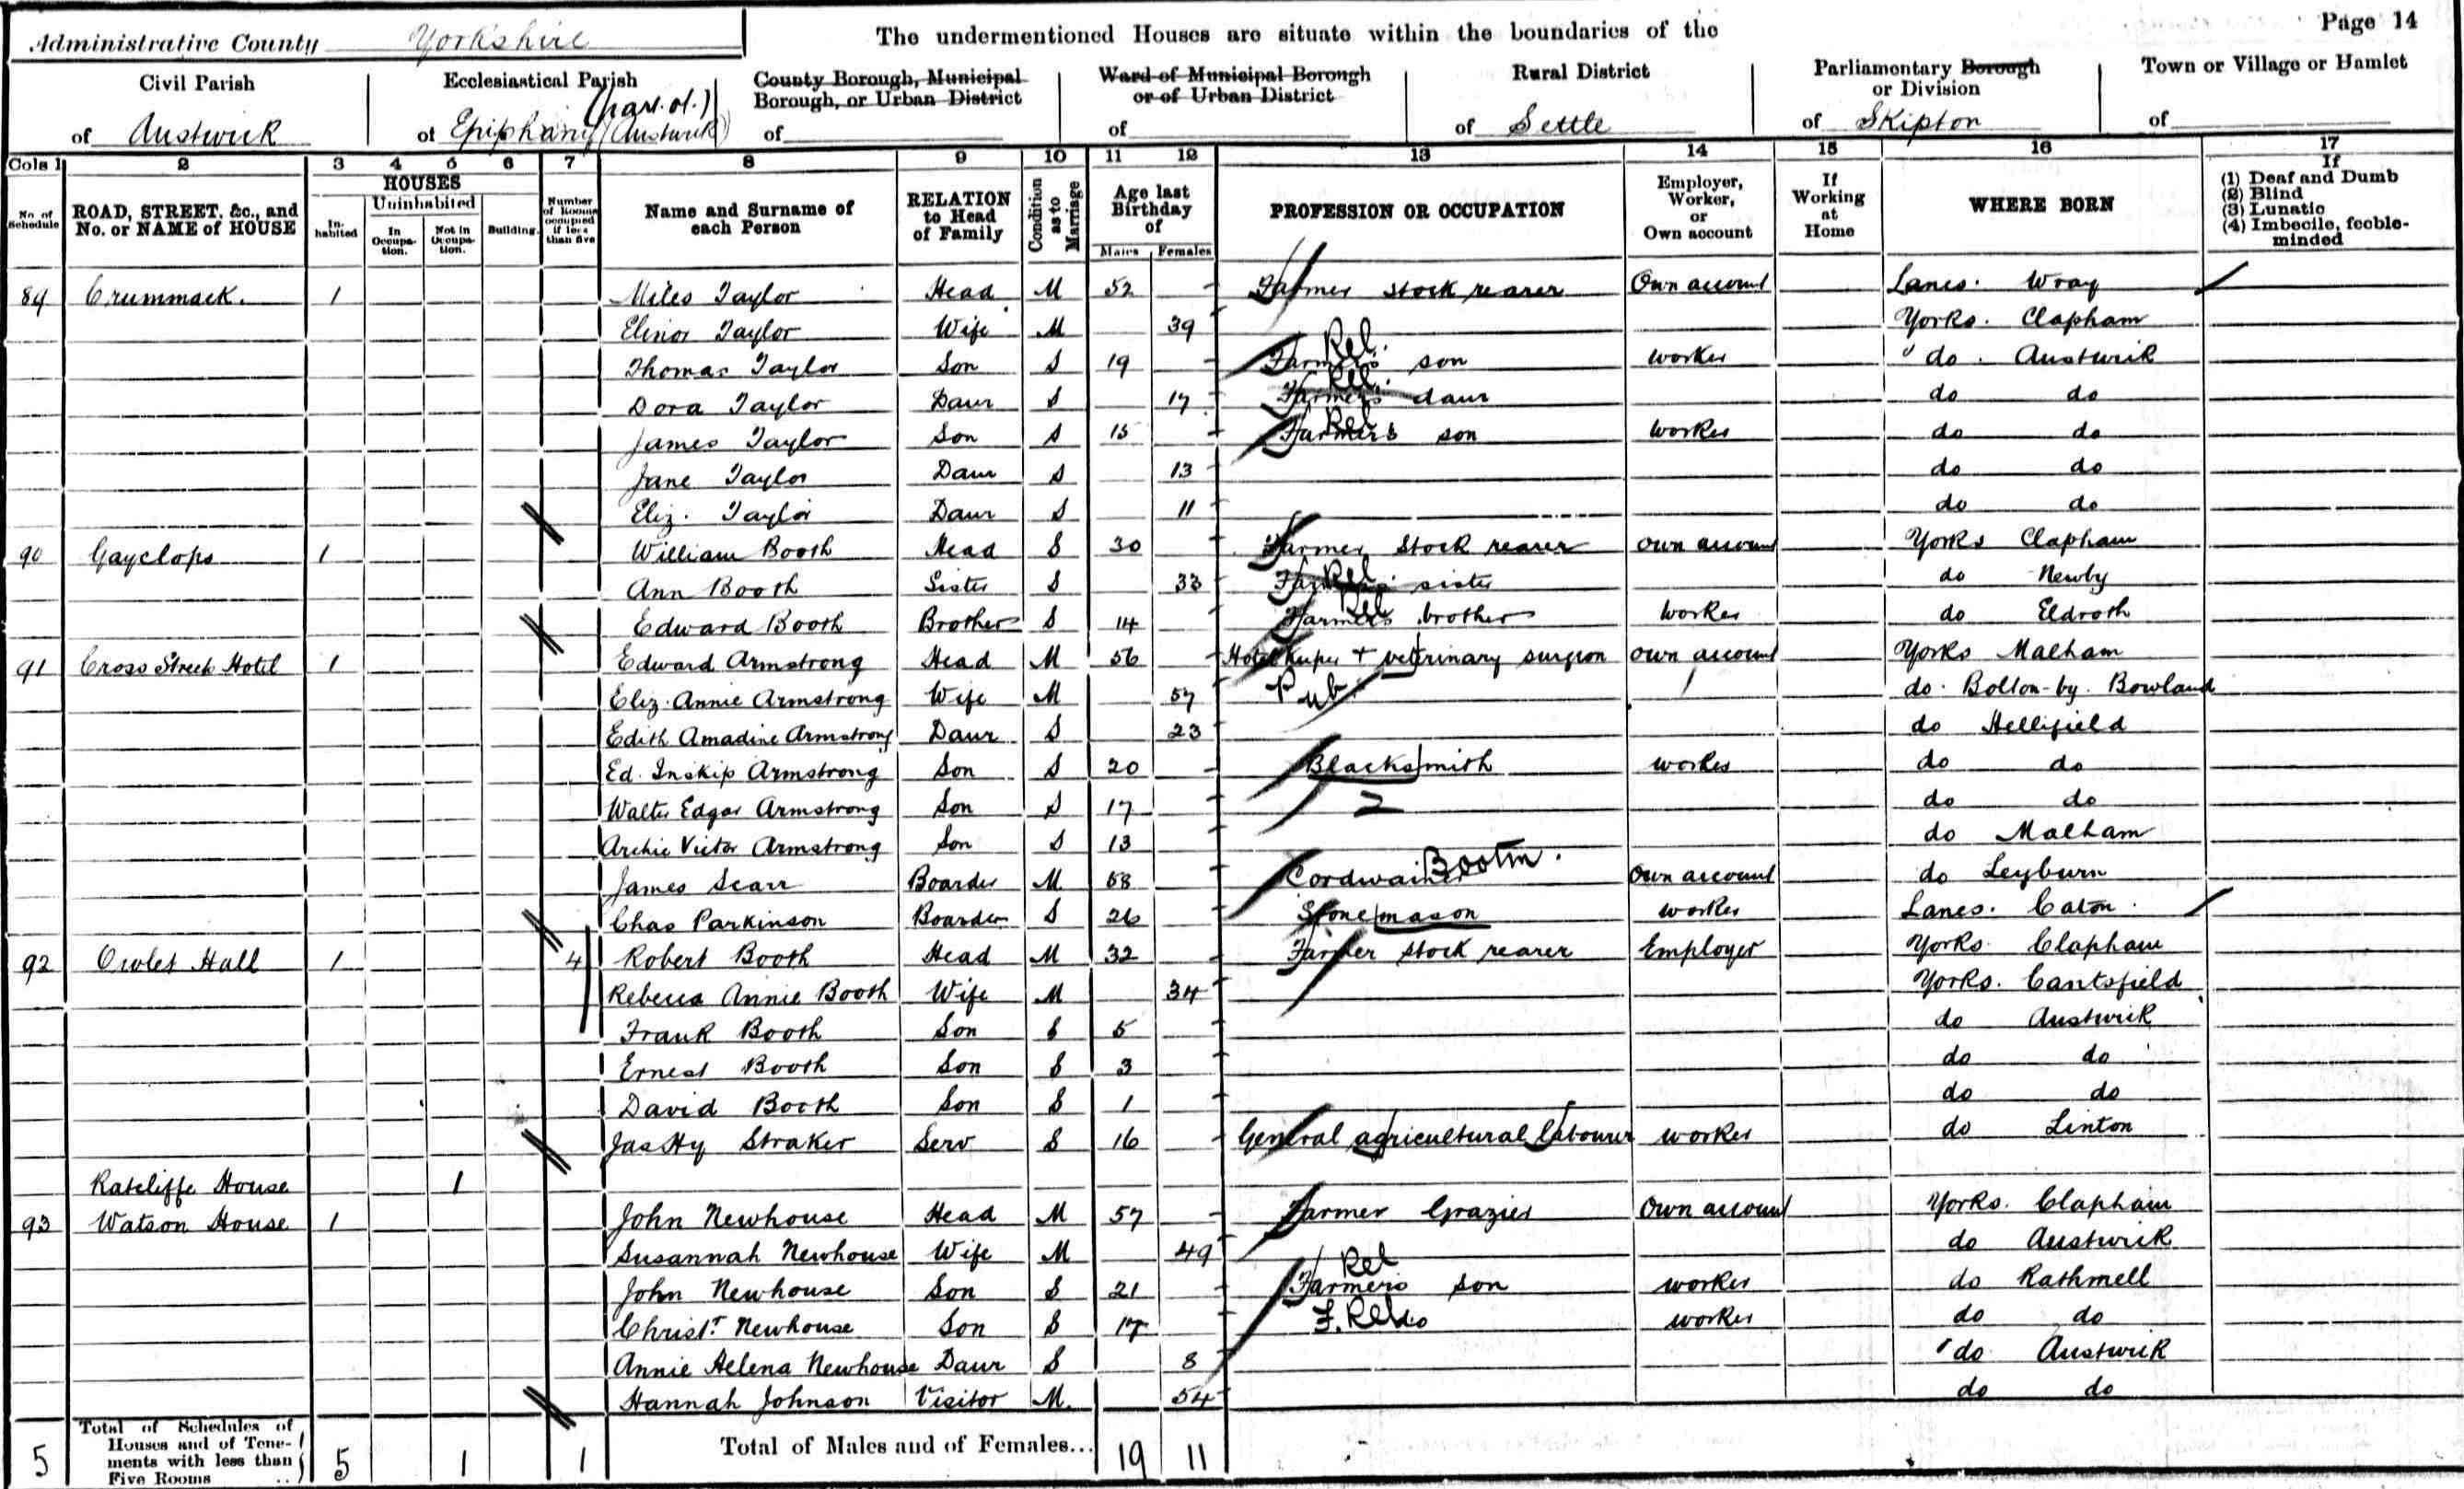 Administrative County Yorkshire
The undermentioned Houses are situate within the boundaries of the
Page 14
Civil Parish of Austwick
Ecclesiastical Parish of Epiphany (Austwick) (part of.)
County Borough, Municipal Borough, or Urban District of
Ward of Municipal Borough or of Urban District of
Rural District of Settle
Parliamentary Borough or Division of Skipton
Town or Village or Hamlet of
Cols 1 2 3 4 5 6 7 8 9 10 11 12 13 14 15 16 17
No. of Schedule
ROAD, STREET, &c., and No. or NAME of HOUSE
HOUSES
Inhabited
Uninhabited
In Occupation.
Not in Occupation.
Building.
Number of Rooms occupied if less than five
Name and Surname of each Person
RELATION to Head of Family
Condition as to Marriage
Age last Birthday of
Males Females
PROFESSION OR OCCUPATION
Employer, Worker, or Own account
If Working at Home
WHERE BORN
If
(1) Deaf and Dumb
(2) Blind
(3) Lunatic
(4) Imbecile, feeble-minded
89 Crummack. 1 Miles Taylor Head M 52 Farmer stock rearer Own account Lancs. Wray
Elinor Taylor Wife M 39 Yorks. Clapham
Thomas Taylor Son S 19 Farmer's son Rel. worker do. Austwick
Dora Taylor Daur S 17 Farmer's daur Rel. do do
James Taylor Son S 15 Farmer's son Rel worker do do
Jane Taylor Daur S 13 do do
Eliz. Taylor Daur S 11 do do
90 Gayclops 1 William Booth Head S 30 Farmer Stock rearer own account Yorks Clapham
Ann Booth Sister S 33 Farmer's sister Rel do Newby
Edward Booth Brother S 14 Farmer's brother Rel worker do Eldroth
91 Cross Streets Hotel 1 Edward Armstrong Head M 56 Hotel Keeper + vetrinary surgeon own account Yorks Malham
Eliz. Annie Armstrong Wife M 57 Pub do. Bolton-by-Bowland
Edith Amadine Armstrong Daur S 23 do Hellifield
Ed. Inskip Armstrong Son S 20 Blacksmith worker do do
Walter Edgar Armstrong Son S 17 2 do do
Archie Victor Armstrong Son S 13 do Malham
James Scarr Boarder M 58 Cordwainer Bootm. Own account do Leyburn
Chas Parkinson Boarder S 26 Stone mason worker Lancs. Caton.
92 Owlet Hall 1 4 Robert Booth Head M 32 Farmer stock rearer Employer Yorks. Clapham
Rebecca Annie Booth Wife M 34 Yorks. Cantsfield
Frank Booth Son S 5 do Austwick
Ernest Booth Son S 3 do do
David Booth Son S 1 do do
Jas Hy Straker Serv S 16 General agricultural labourer worker do Linton
Ratcliffe House 1
93 Watson House 1 John Newhouse Head M 57 Farmer Grazier Own account Yorks. Clapham
Susannah Newhouse Wife M 49 do Austwick
John Newhouse Son S 21 Farmer's son Rel worker do Rathmell
Christr. Newhouse Son S 17 F. Rel do worker do do
Annie Helena Newhouse Daur S 8 do Austwick
Hannah Johnson Visitor M. 54 do do
5 Total of Schedules of Houses and of Tenements with less than Five Rooms .. 5 1 1 Total of Males and of Females... 19 11